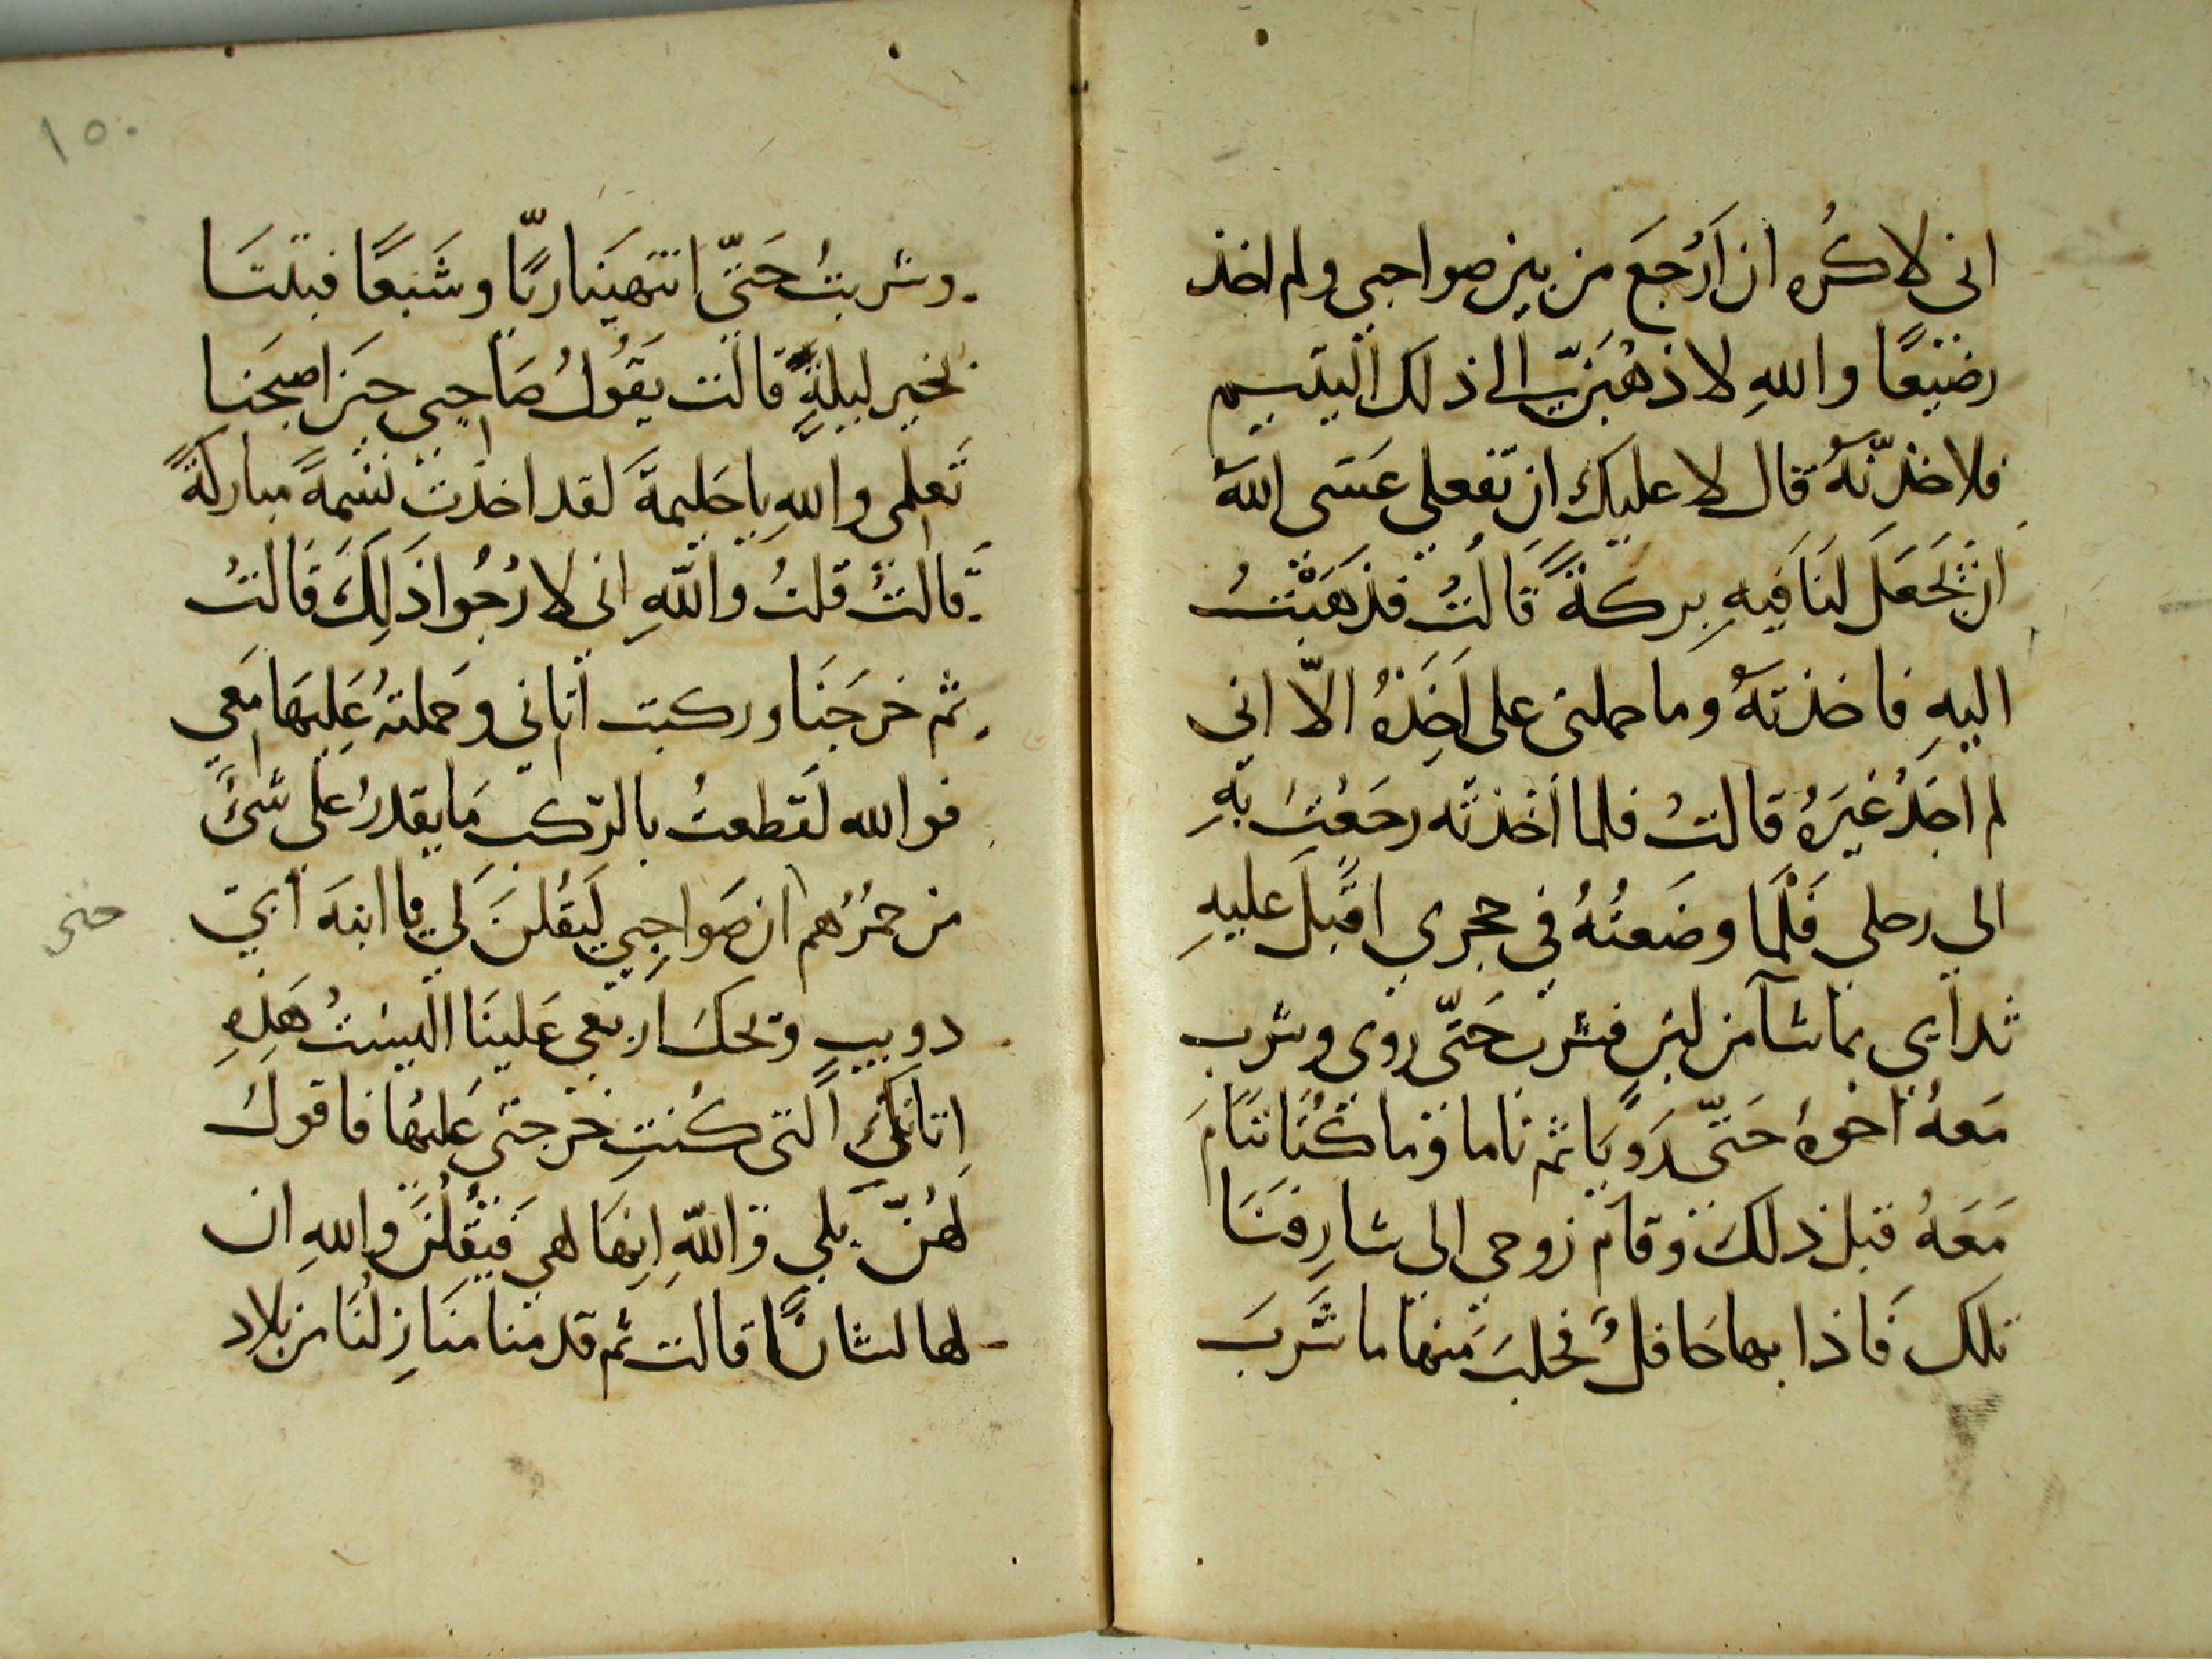 اني لاكُره ان اَرْجعَ من بين صواحبي ولم اخذ
رضيعًا واللهِ لاذهُبَنّ الى ذلك اليتيم
فلاخذنّهُ قال لا عليك ان تفعلي عَسَى الله
ان يَجعَلَ لنَا فيهِ بركةً قالتُ فذهَبْتُ
اليهِ فاخذتهُ وما حملني على اَخذهُ الاّ اني
لم اجدْ غيرَهُ قالتْ فلما اخذته رجَعْتُ بهِ
الى رحلي فَلَمَّا وضَعتُهُ في حجري اقبلَ عليهِ
ثداي بما شآ من لبن فشرب حَتّى روى وشرب
مَعهُ اخوهُ حَتّى رَوِيَا ثم ناما وما كُنَا ننَام
مَعَهُ قبل ذلكَ وقام زوجي الى شارِفنَا
تلك فَاذا بها حَافلٌ فحلبَ منها ما شَربَ
وشربتُ حَتّى انتهَينا ريًّا وشَبعًا فبتنَا
بخير ليلةٍ قالت يَقُولُ صَاحبي حينَ اصبحَنا
تَعلمي واللهِ ياحَليمةَ لقد اخذتِ نسَمةً مباركةً
قالتْ قلتُ واللهِ اني لارْجُوا ذَلِكَ قَالتُ
ثم خرجَنا وركبت اتاني وحملتهُ عَليهَا مَعي
فوالله لقَطعتُ بالرّكب مَا يقدرُ على شئَ
من حمُرُهم ان صَواحِبي لَيَقُلنَ لي يا ابنهَ ابي
حتى
دويب وَيحك اربعي عَلينَا اليسَتْ هَذِهِ
اِتانكِ التى كُنتِ خرجتى عَليهَا فاقولُ
لهُنّ بلي واللّهِ اِنهَا لهي فيَقُلنَ واللهِ ان
لها لشانًا قالت ثم قدمنا منَازِلنَا من بلاد
١٥٠